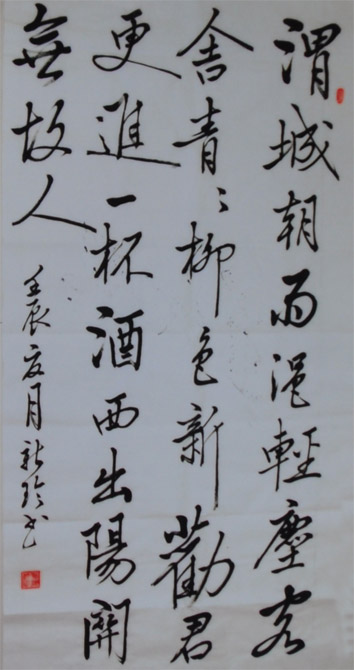 渭城朝雨浥輕塵客
舍青〻柳色新勸君
更進一杯酒西出陽關
無故人
壬辰夏月